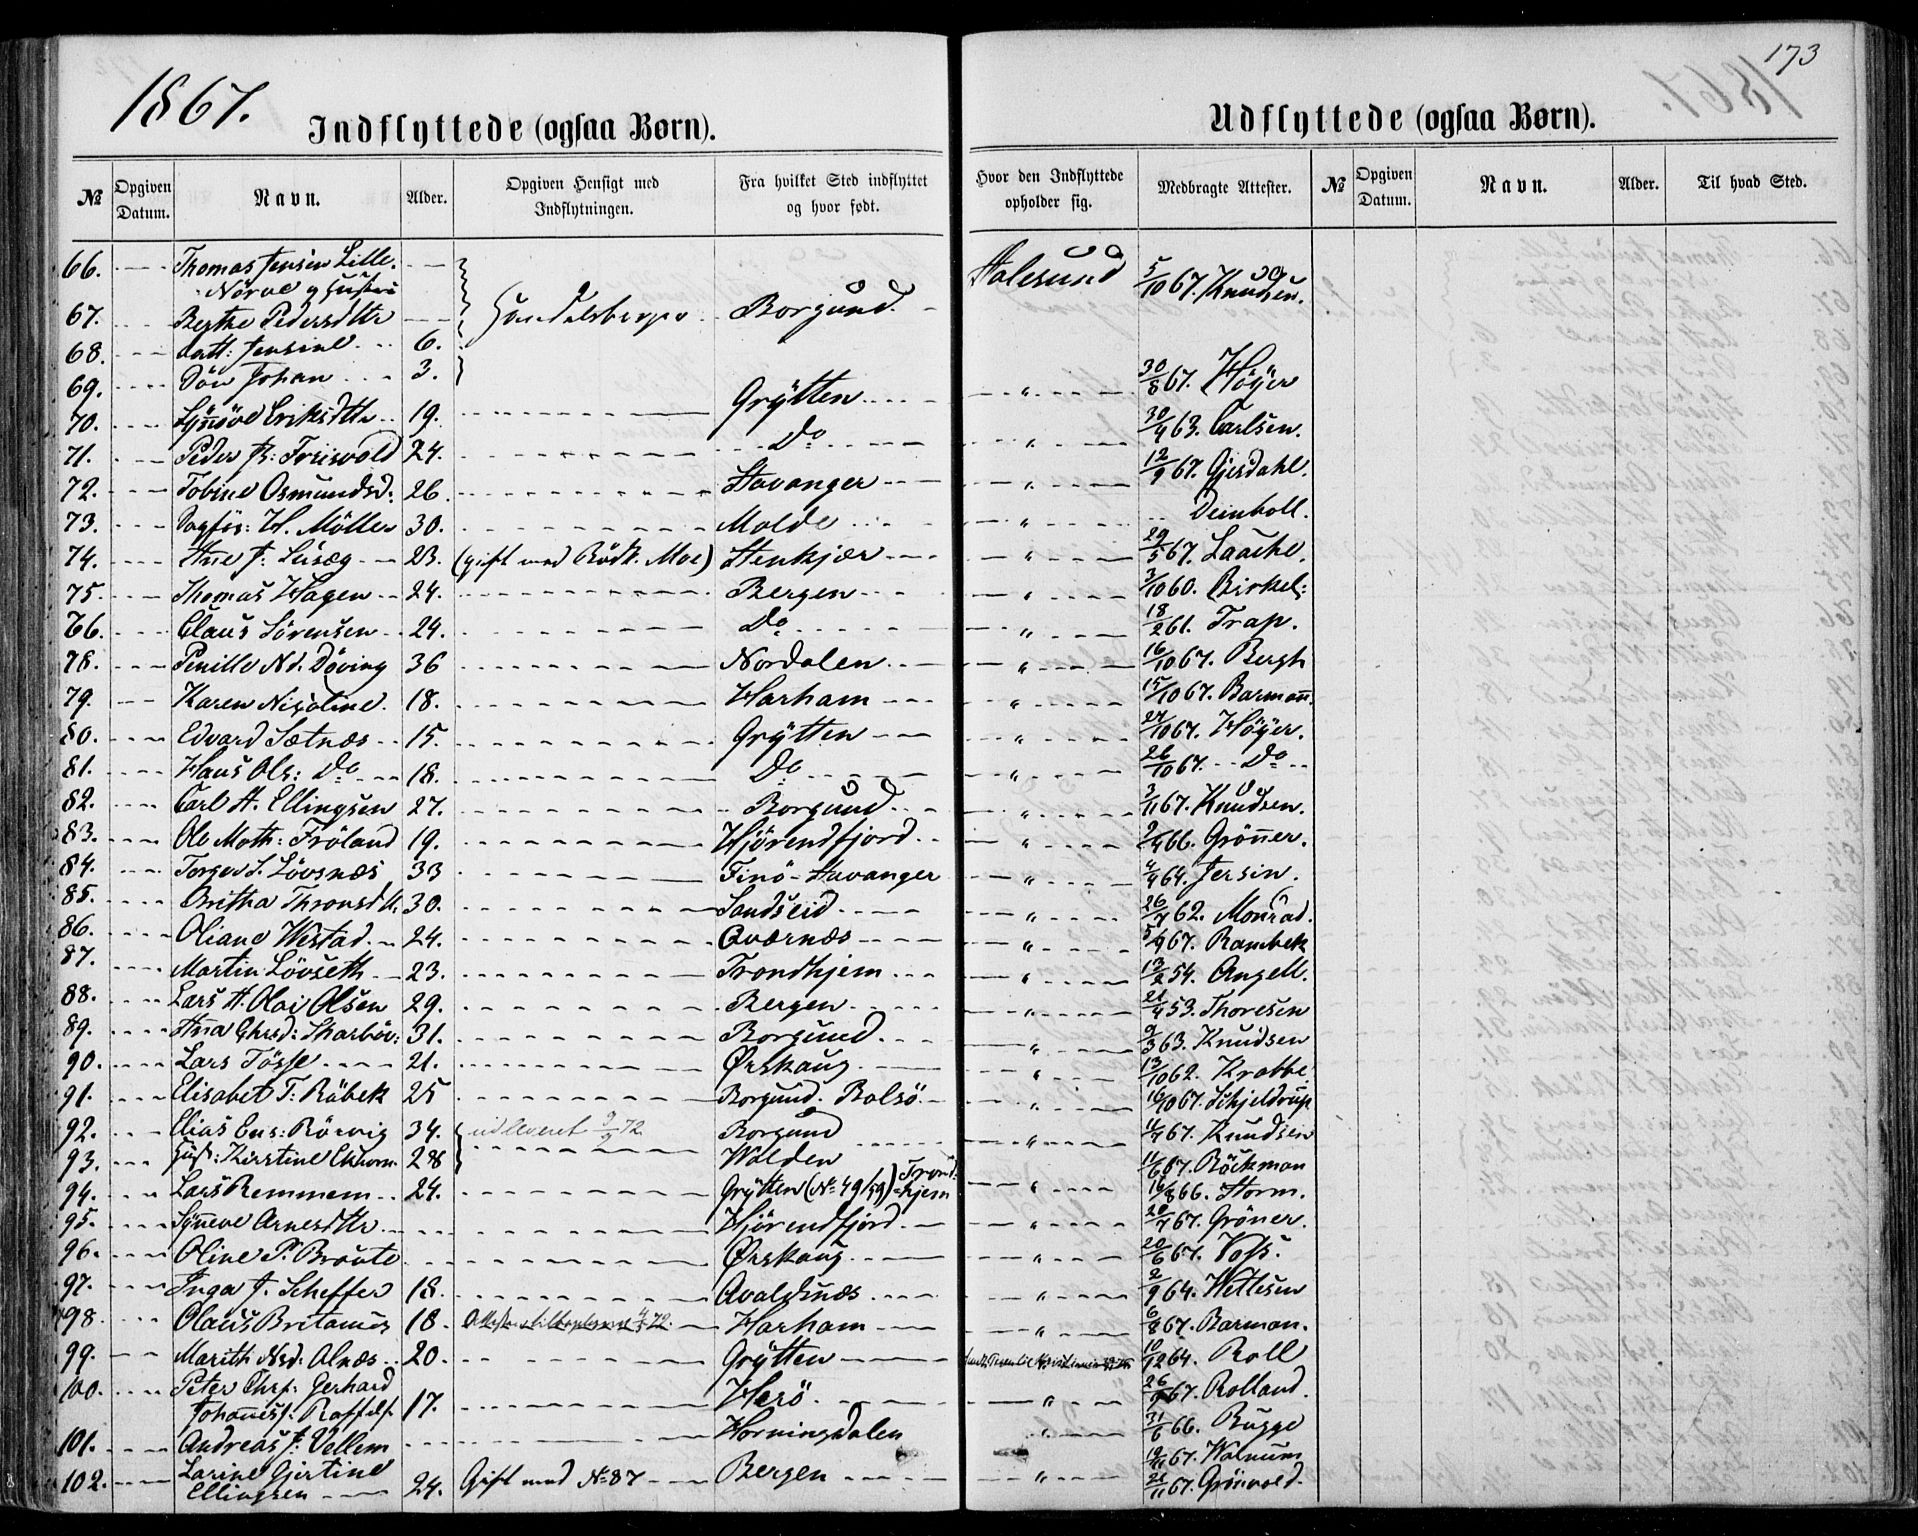 1867.
173
Indflyttede (ogsaa Børn).
Udflyttede (ogsaa Børn).
No Opgiven Datum. Navn. Alder. Opgiven Hensigt med Indflytningen. Fra hvilket Sted indflyttet og hvor født. Hvor den Indflyttede opholder sig. Medbragte Attester. No Opgiven Datum. Navn. Alder. Til hvad Sted.
66. Thomas Jensen Lille- Aalesund 5/10 67. Knudsen.
Nörve og Hustru
67. Berthe Pedersdttr Borgund
68. Datt: Jensine 6.
69. Sön Johan 3. 30/8 67. Höyer
70. Synnöve Eriksdttr 19. Grÿtten " 30/4 63. Carlsen.
71. Peder J: Friisvold 24. Do " 12/9 67. Gjerdahl.
72. Tobine Osmundsd. 26. Stavanger "
73. H. Möller 30. Molde " Deinboll.
74. Ane J: 23. (gift med Bödk. Moe) Stenkjær " 29/5 67. Laache.
75. Thomas Hagen 24. Bergen " 3/10 60. Birkel:
76. Claus Sörensen 24. Do " 18/2 61. Trap.
78. Pernille Nd. Döving 36 Nordalen " 16/10 67. Bergh
79. Karen Nicoline 18. Harham " 15/10 67. Barmann.
80. Edvard Sætnæs 15. Grÿtten " 24/10 67. Höyer.
81. Hans Ols: Do 18. Do " 26/10 67. Do
82. Carl A. Ellingsen 27. Borgund " 3/11 67. Knudsen.
83. Ole Math: Fröland 19. Hjörendfjord " 2/4 66. Grönner.
84. Torger S. Lövsnæs 33 Finö-Stavanger " 4/4 64. Jersin.
85. Britha Thronsdtt. 30. Sandseid " 26/7 62. Monrad.
86. Oliane Westad 24. Qværnæs " 5/9 67. Rambek
87. Martin Lövseth 23. Trondhjem " 13/2 54. Angell.
88. Lars A. Olai Olsen 29. Bergen " 21/4 53. Thoresen
89. Anna Chrd: Skarböv: 31. Borgund " 9/3 63. Knudsen
90. Lars Tösse 21. Ørskaug " 13/10 62. Krabbe.
91. Elisabet T: Röbek 25 Borgund. Bolsö " 16/10 67. Schjeldrup
92. Elias Ens: Rörvig 34. udleveret 9/9 72 Borgund " 11/7 67. Knudsen
93. Hust: Kirstine Ekhorn 28 Wolden 11/6 67. Böckman
94. Lars Remmem 24. Grÿtten (No 49/59) Trondhjem " 16/8 66. Storm.
95. Synneve Arnesdttr Hjörendfjord " 20/7 67. Gröner.
96. Oline P. Bröste Ørskaug " 20/6 67. Voss.
97. Inga J. Scheffer 18. Avaldsnæs " 2/9 64. Wettesen
98. Olaus Britanus 18. Harham " 6/8 67. Barman.
99. Marith Nsd: Alnæs 20. Grÿtten 10/12 64. Roll
100. Peter Chrf: Gerhard 26/9 67. Rolland.
Johannesf: Raffels. 17. Herö "
101. Andreas J: Vellem Horningdalen " 31/6 66. Bugge
102. Larine Gjertine 12/11 67. Walnum
Ellingsen 24. Gift med No 87 Bergen " 21/11 67. Grönvold.